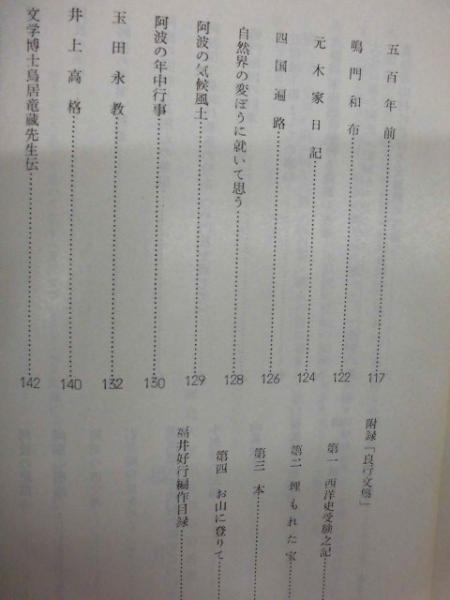 五百年前 117
鳴門和布 122
元木家日記 124
四国遍路 126
自然界の変ぼうに就いて思う 128
阿波の気候風土 129
阿波の年中行事 130
玉田永教 132
井上高格 140
文学博士鳥居竜蔵先生伝 142
附録「良行文叢」
第一 西洋史受験之記
第二 埋もれた宝
第三 本
第四 お山に登りて
福井好行編作目録